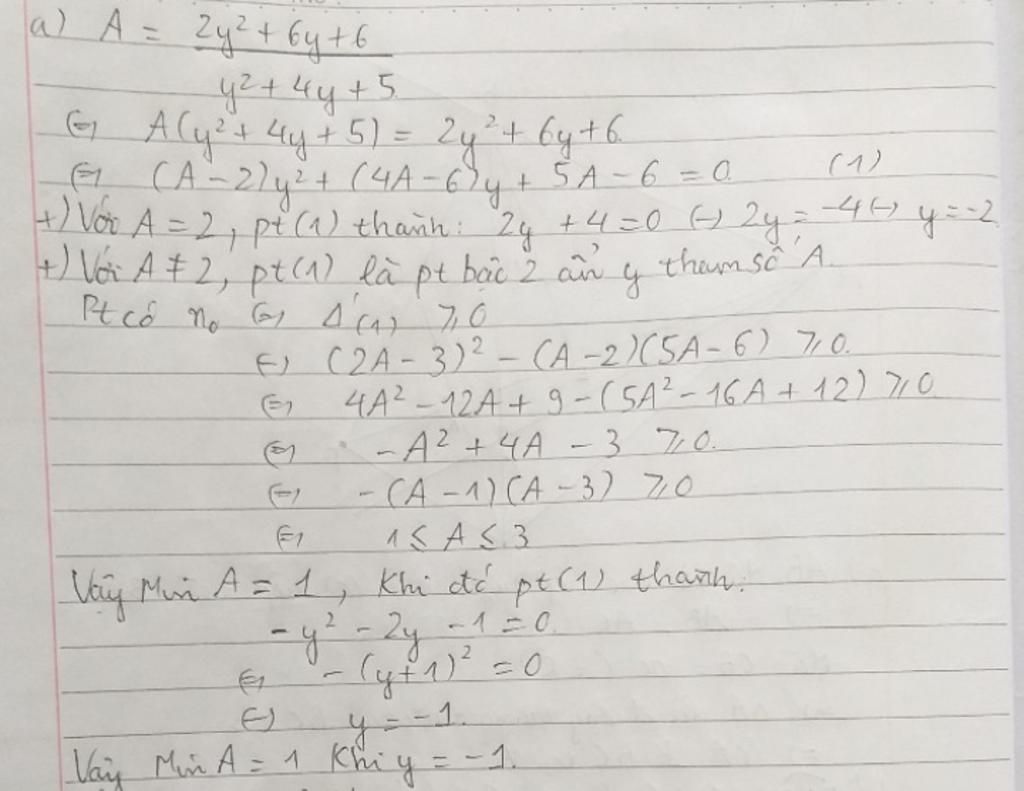 a) A = 2y² + 6y + 6
y² + 4y + 5
⇔ A(y² + 4y + 5) = 2y² + 6y + 6
⇔ (A - 2)y² + (4A - 6)y + 5A - 6 = 0 (1)
+) Với A = 2, pt (1) thành: 2y + 4 = 0 ⇔ 2y = -4 ⇔ y = -2
+) Với A ≠ 2, pt (1) là pt bậc 2 ẩn y tham số A.
Pt có no ⇔ Δ'(1) ≥ 0
⇔ (2A - 3)² - (A - 2)(5A - 6) ≥ 0.
⇔ 4A² - 12A + 9 - (5A² - 16A + 12) ≥ 0
⇔ - A² + 4A - 3 ≥ 0.
⇔ - (A - 1)(A - 3) ≥ 0
⇔ 1 ≤ A ≤ 3
Vậy Min A = 1, Khi đó pt (1) thành:
- y² - 2y - 1 = 0
⇔ - (y + 1)² = 0
⇔ y = -1.
Vậy Min A = 1 Khi y = -1.